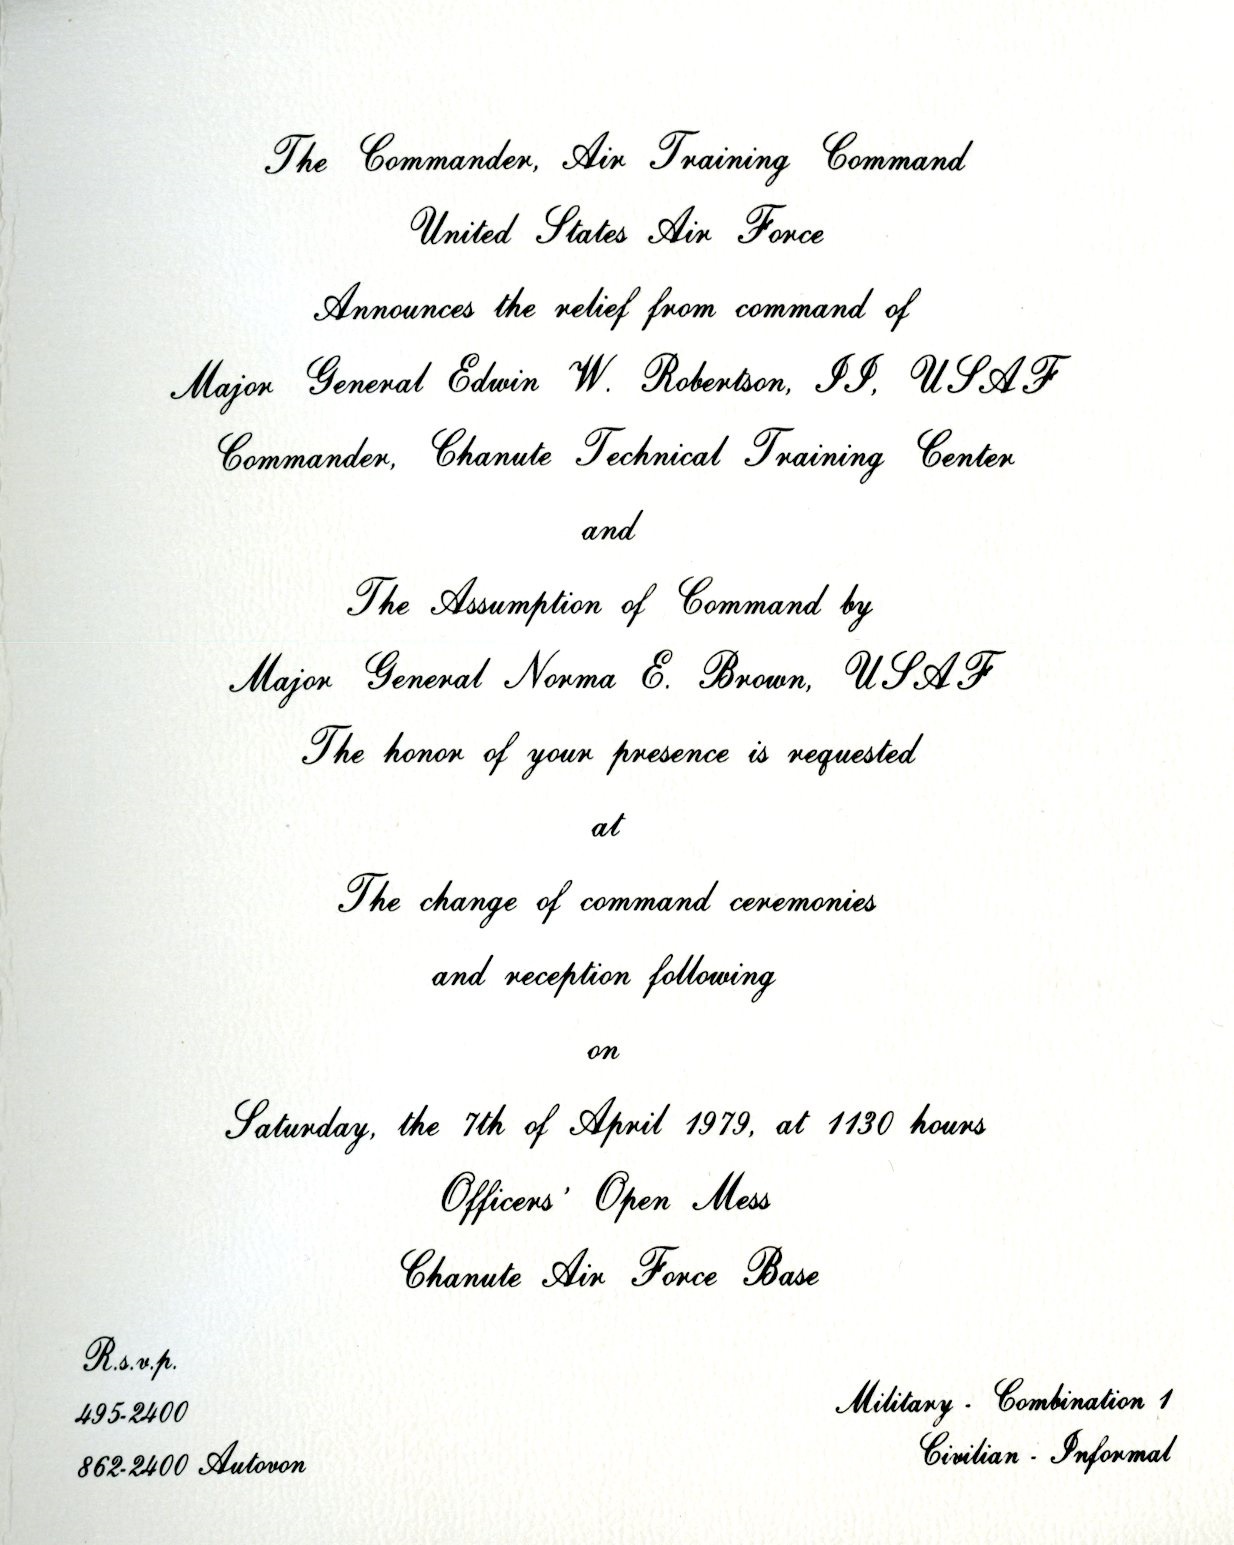 The Commander, Air Training Command
United States Air Force
Announces the relief from command of
Major General Edwin W. Robertson, II, USAF
Commander, Chanute Technical Training Center
and
The Assumption of Command by
Major General Norma E. Brown, USAF
The honor of your presence is requested
at
The change of command ceremonies
and reception following
on
Saturday, the 7th of April 1979, at 1130 hours
Officers' Open Mess
Chanute Air Force Base
R.s.v.p.
495-2400
862-2400 Autovon
Military - Combination 1
Civilian - Informal